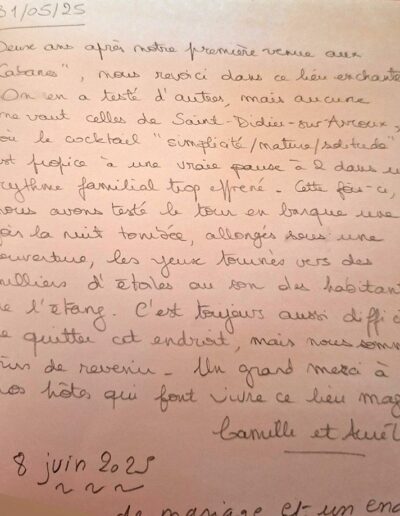 31/05/25
Deux ans après notre première venue aux
Cabanes", nous revoici dans ce lieu enchanté
On en a testé d'autres, mais aucune
ne vaut celles de Saint-Didier-sur-Arroux,
où le cocktail "simplicité/nature/solitude"
est propice à une vraie pause à 2 dans u
rythme familial trop effréné. Cette fois-ci,
nous avons testé le tour en barque une
fois la nuit tombée, allongés sous une
couverture, les yeux tournés vers des
milliers d'étoiles au son des habitan
de l'étang. C'est toujours aussi diffici
de quitter cet endroit, mais nous somm
sûrs de revenir. Un grand merci à
nos hôtes qui font vivre ce lieu mag
Camille et Aurél
8 juin 2025
de mariage et un end